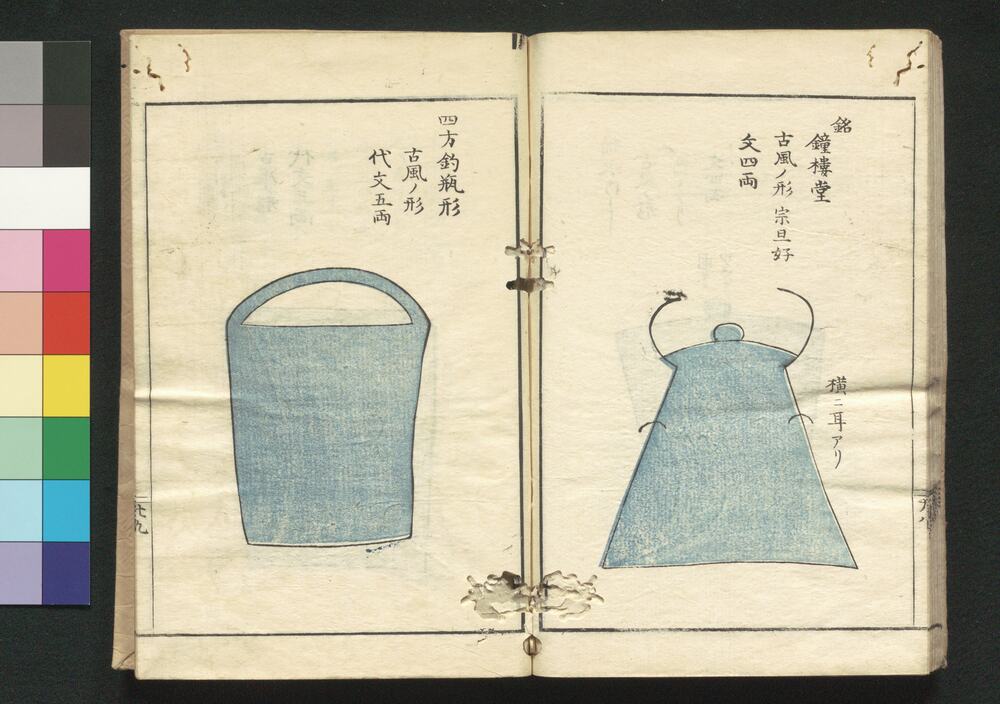 銘
鐘樓堂
古風ノ形 宗旦好
文四両
横ニ耳アリ
四方釣瓶形
古風ノ形
代文五両
廿九